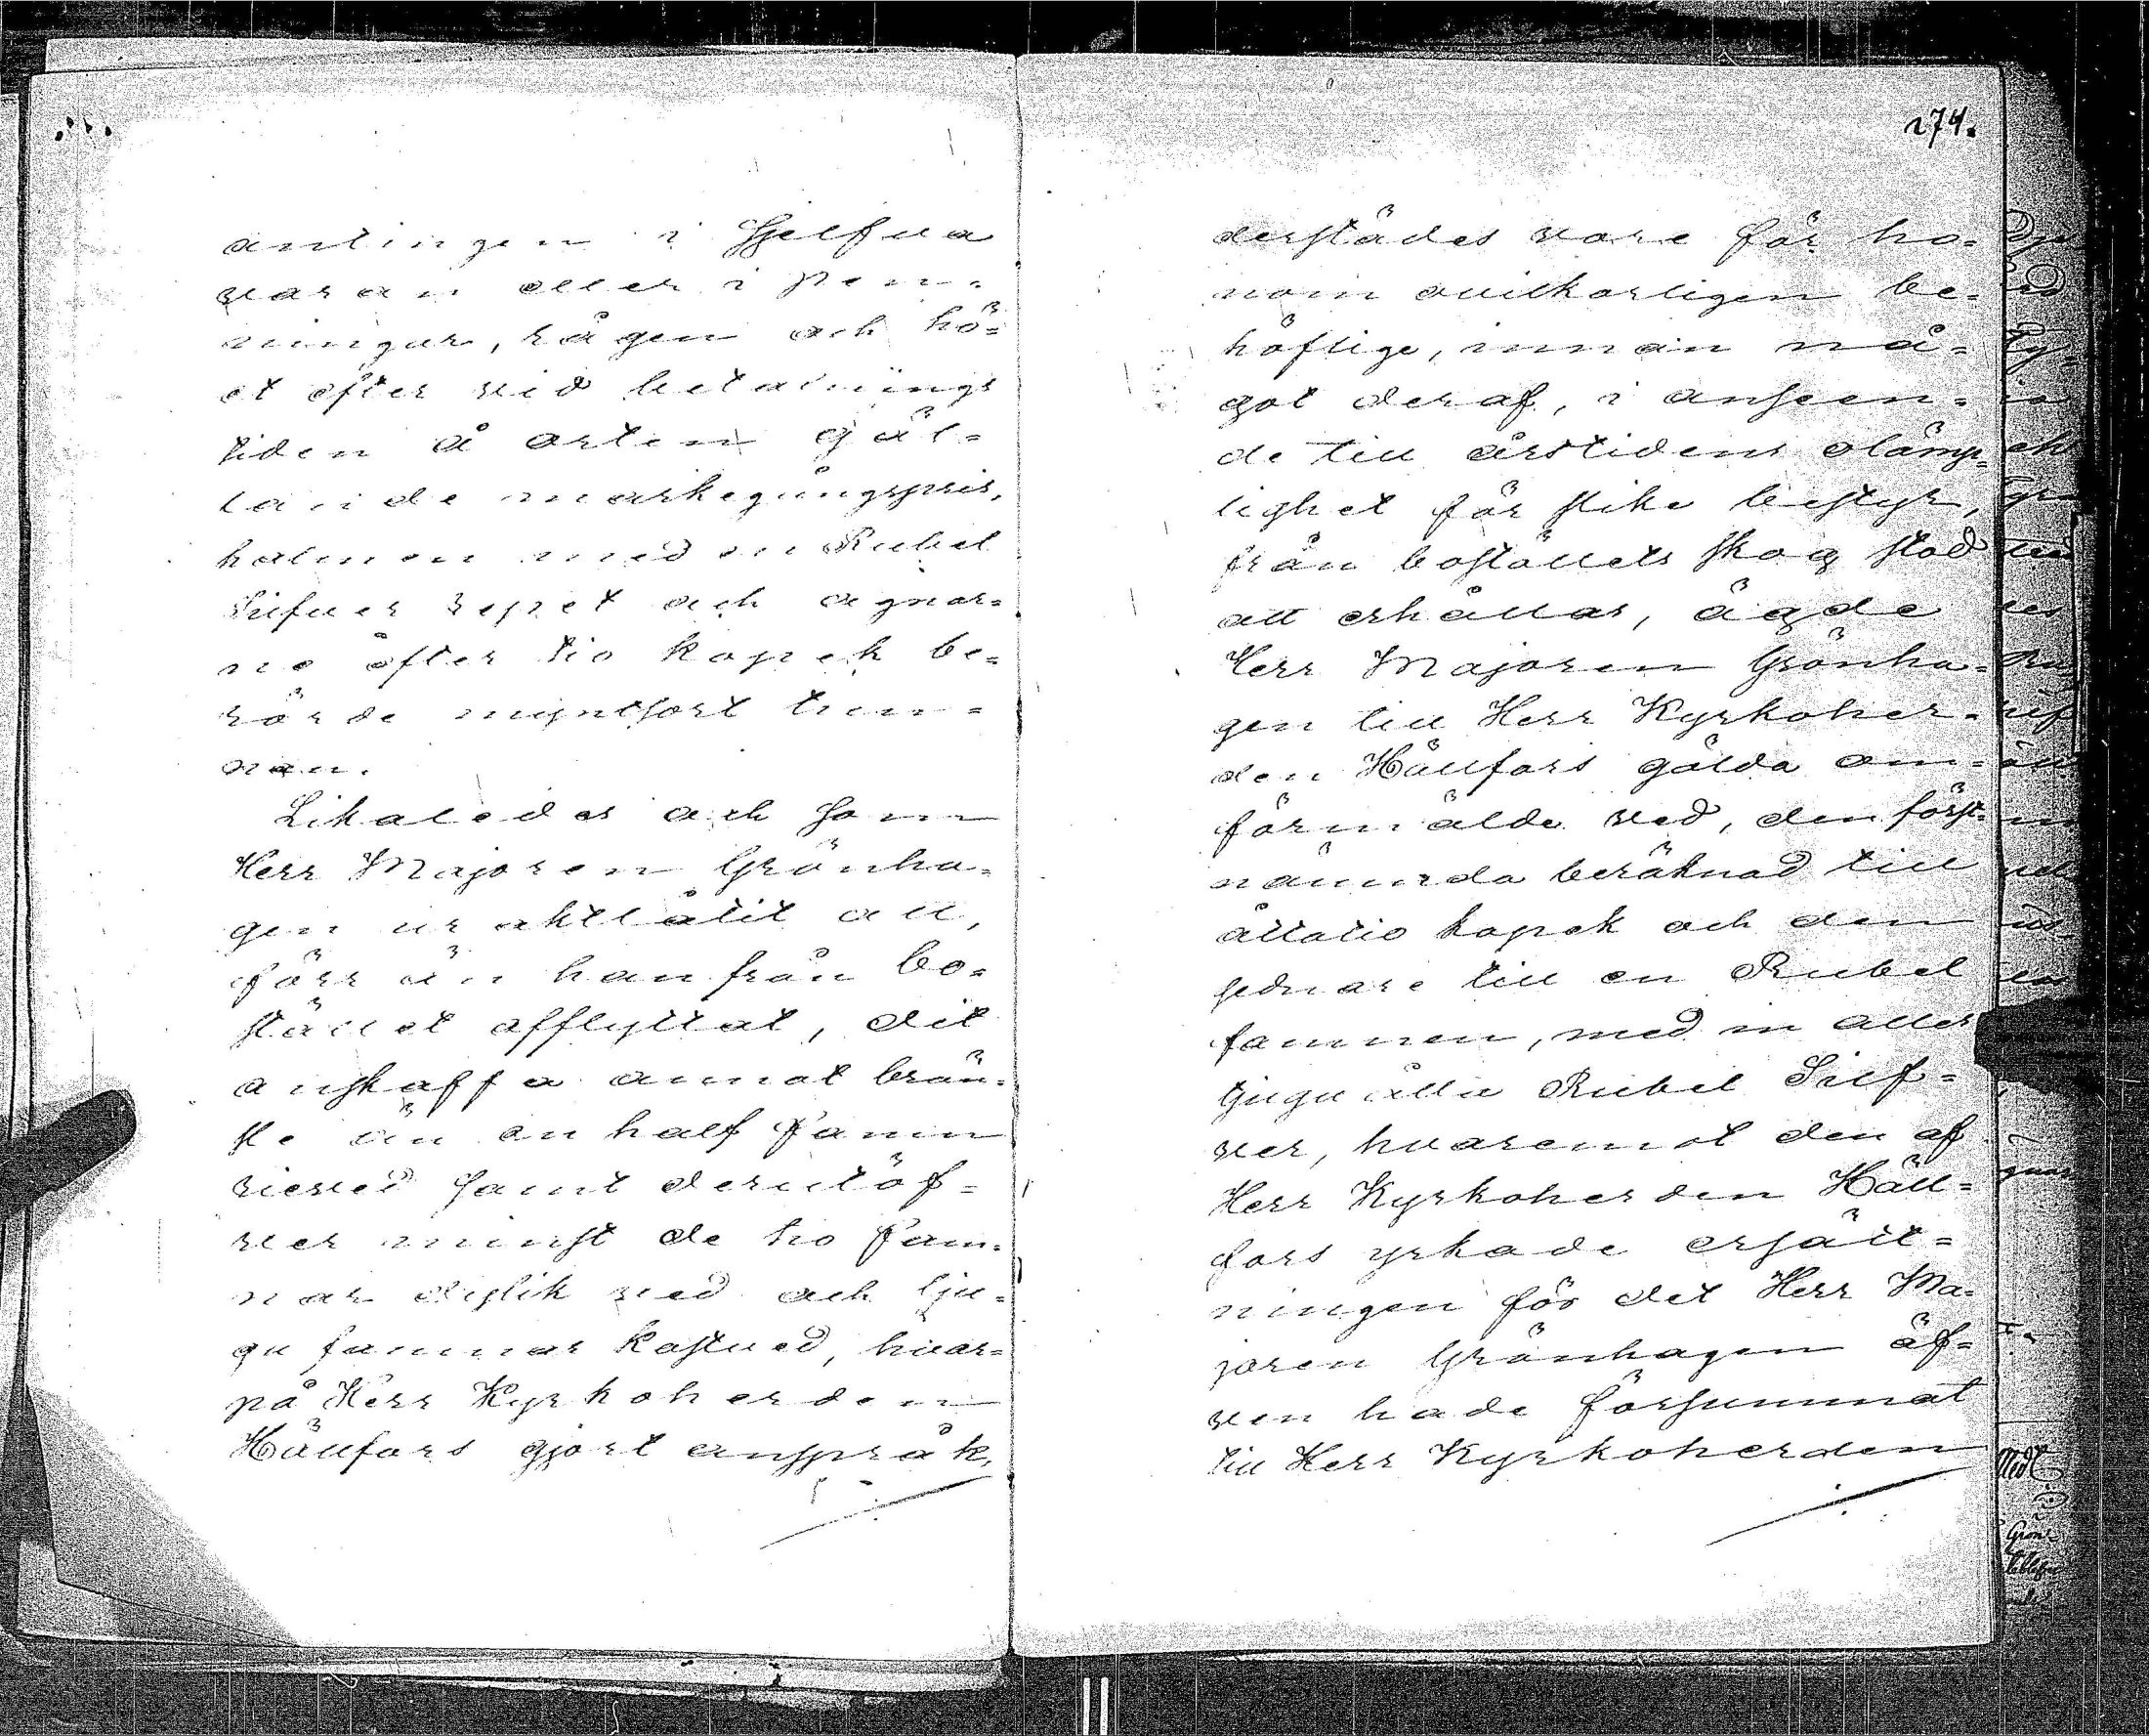 antingen i sjelfva
varan eller i pen-
ningar, rågen och hö-
et efter vid betalnings
tiden å orten gäl-
lande markegångspris,
halmen med en Rubel
Silfver repet och agnar-
ne efter tio kopek be-
rörde myntsort tun-
nan.
Likaledes och som
Herr Majoren Grönha-
gen uraktlåtit att,
förr än han från bo-
stället afflyttat, dit
anskaffa annat brän-
sle än en half famn
rieved samt derutöf-
ver minst de tio fam-
nar dyslik ved och tju-
gu famnar kastved, hvar-
på Herr Kyrkoherden
Hällfors gjort anspråk,
274.
derstädes vore för ho-
nom ovilkorligen be-
höflige, innan nå-
got deraf, i anseen-
de till årstidens olämp-
lighet för slike bestyr,
från boställets skog stod
att erhållas, ägde
Herr Majoren Grönha-
gen till Herr Kyrkoher-
den Hällfors gälda om-
förmälde ved, den först-
nämnda beräknad till
åttatio kopek och den
sednare till en Rubel
famnen, med in alles
tjuguåtta Rubel Silf-
ver, hvaremot den af
Herr Kyrkoherden Häll-
fors yrkade ersätt-
ningen för det Herr Ma-
joren Grönhagen äf-
ven hade försummat
till Herr Kyrkoherden